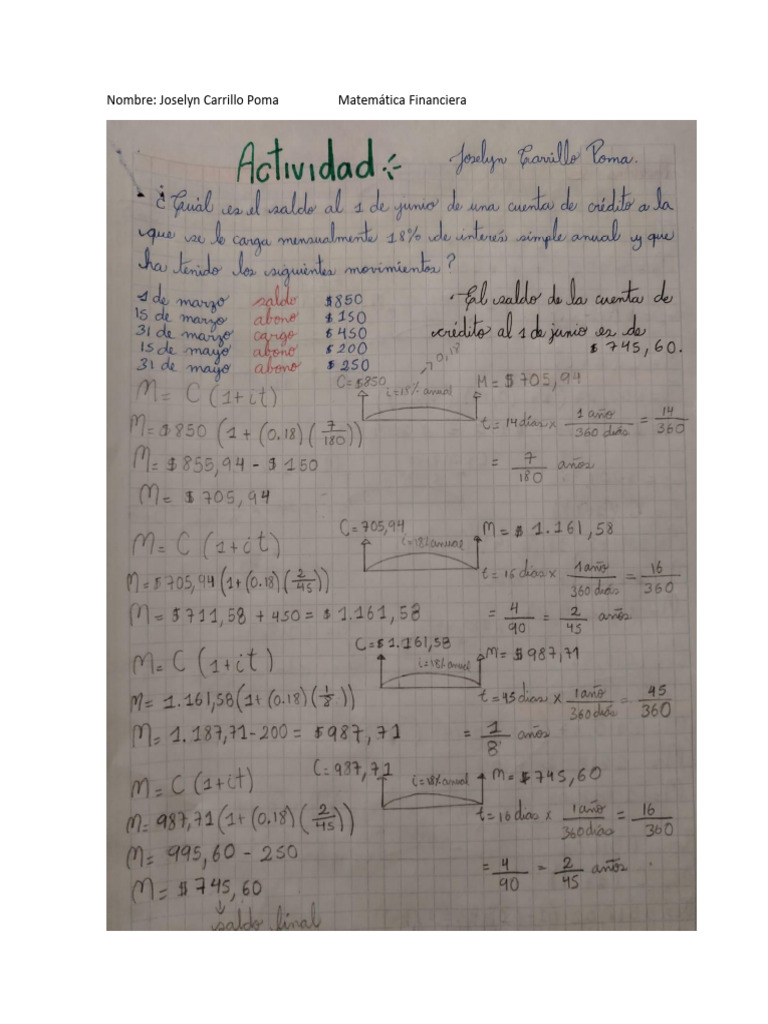 Nombre: Joselyn Carrillo Poma Matemática Financiera
Actividad
Joselyn Carrillo Poma.
- ¿Cuál es el saldo al 1 de junio de una cuenta de crédito a la
que se le carga mensualmente 18% de interés simple anual y que
ha tenido los siguientes movimientos?
1 de marzo saldo $850
15 de marzo abono $150
31 de marzo cargo $450
15 de mayo abono $200
31 de mayo abono $250
· El saldo de la cuenta de
crédito al 1 de junio es de
$ 745,60.
M = C (1+it)
C=$850 i=18% anual 0,18 M=$705,94
M=$850 (1+(0.18)(7/180))
t=14 días x 1 año/360 días = 14/360
M=$855,94 - $150
= 7/180 años
M= $705,94
M= C (1+it)
C=705,94 i=18% anual M=$ 1.161,58
M=$705,94(1+(0.18)(2/45))
t=16 días x 1 año/360 días = 16/360
M=$711,58 + 450 = $1.161,58
= 4/90 = 2/45 años
M=C (1+it)
C=$1.161,58 i=18% anual M=$987,71
M= 1.161,58(1+(0.18)(1/8))
t=45 días x 1 año/360 días = 45/360
M= 1.187,71-200 = $987,71
= 1/8 años
M=C(1+it)
C=987,71 i=18% anual M=$745,60
M= 987,71(1+(0.18)(2/45))
t=16 días x 1 año/360 días = 16/360
M= 995,60 - 250
= 4/90 = 2/45 años
M=$745,60
saldo final